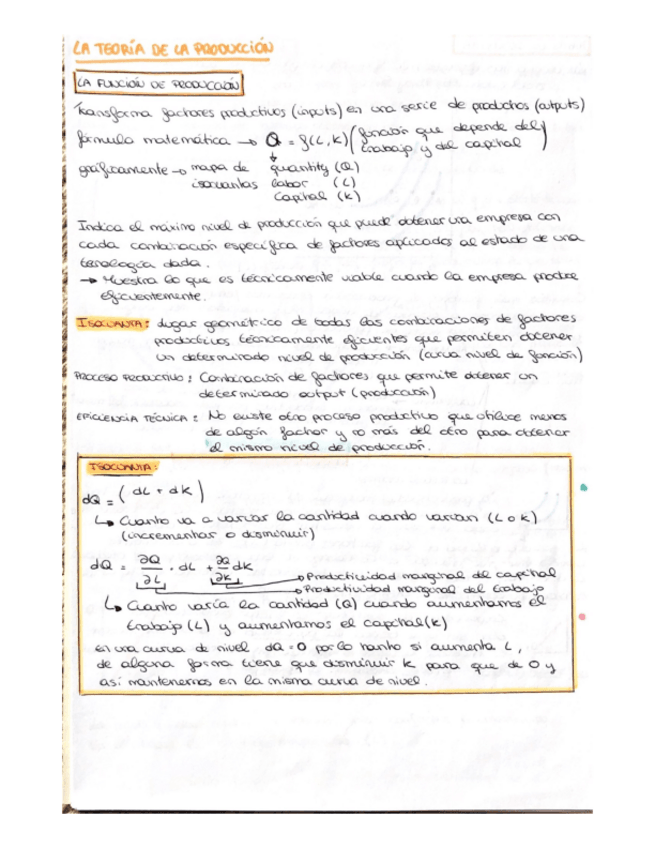 LA TEORÍA DE LA PRODUCCIÓN
LA FUNCIÓN DE PRODUCCIÓN
Transforma factores productivos (inputs) en una serie de productos (outputs)
fórmula matemática → Q = f(L, K) (función que depende del trabajo y del capital)
gráficamente → mapa de isocuantas
quantity (Q)
labor (L)
capital (K)
Indica el máximo nivel de producción que puede obtener una empresa con
cada combinación específica de factores aplicados al estado de una
tecnología dada.
→ Muestra lo que es técnicamente viable cuando la empresa produce
eficientemente.
ISOCUANTA: lugar geométrico de todas las combinaciones de factores
productivos técnicamente eficientes que permiten obtener
un determinado nivel de producción (curva nivel de función)
PROCESO PRODUCTIVO: Combinación de factores que permite obtener un
determinado output (producción)
EFICIENCIA TÉCNICA: No existe otro proceso productivo que utilice menos
de algún factor y no más del otro para obtener
el mismo nivel de producción.
ISOCUANTA:
dQ = (dL + dK)
↳ Cuanto va a variar la cantidad cuando varían (L o K)
(incrementar o disminuir)
dQ = ∂Q/∂L · dL + ∂Q/∂K dK
→ Productividad marginal del capital
→ Productividad marginal del trabajo
↳ Cuanto varía la cantidad (Q) cuando aumentamos el
trabajo (L) y aumentamos el capital (K)
En una curva de nivel dQ = 0 por lo tanto si aumenta L,
de alguna forma tiene que disminuir K para que de 0 y
así mantenernos en la misma curva de nivel.